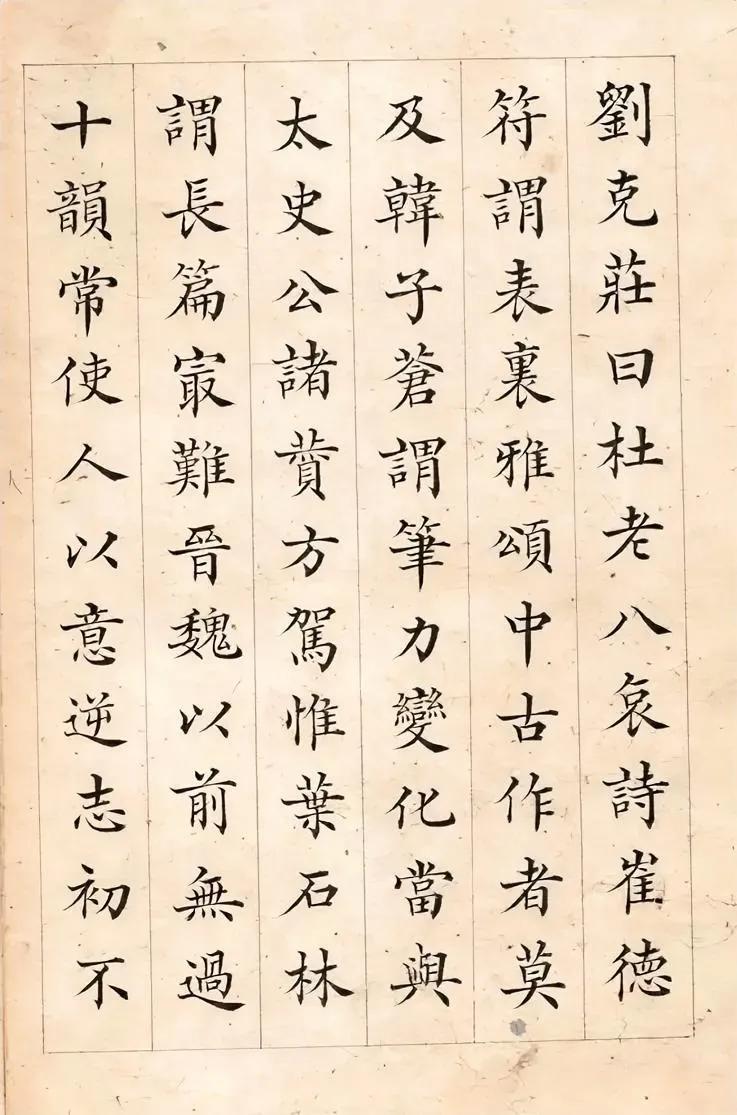 劉克莊曰杜老八哀詩崔德
符謂表裏雅頌中古作者莫
及韓子蒼謂筆力變化當與
太史公諸賛方駕惟葉石林
謂長篇㝡難晉魏以前無過
十韻常使人以意逆志初不